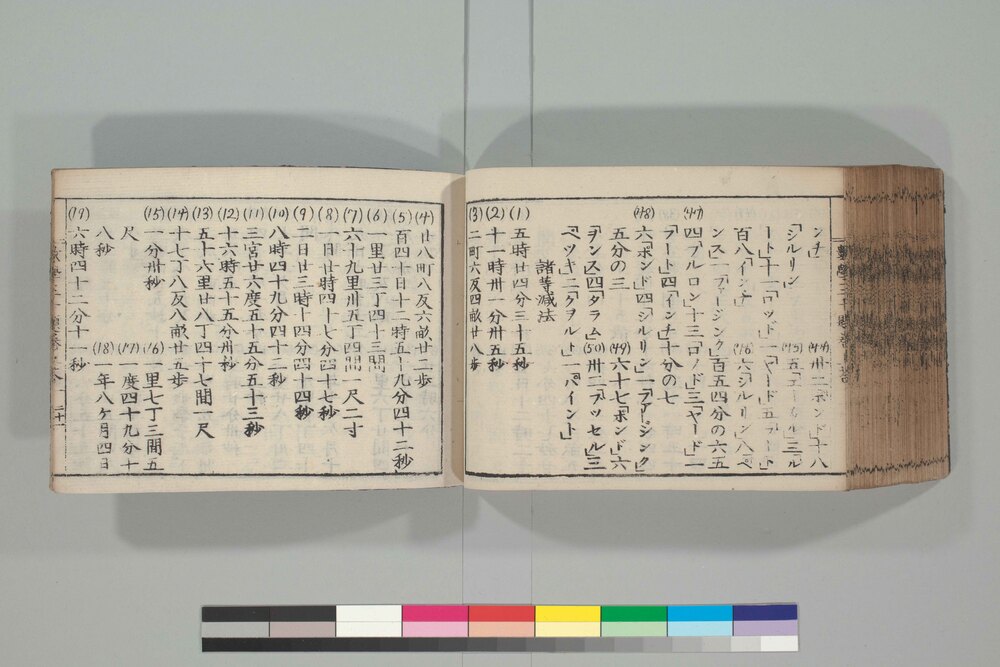 ンチ」 (44)卅二「ポンド」十八
「シルリン (45)五「エーカル」三「ル
ート」十一「ロッド」一「ヤード」五「フート」
百八「インチ」 (46)六「シルリン」八「ペ
ンス」一「ファージング」百五四分の六五
(47)四「フルロン」十三「ロッド」三「ヤード」一
「フート」四「インチ」十分の七
(48)六「ポンド」四「シルリン」一「ファージング」
五分の三 (49)六十七「ポンド」六
「ヲンス」四「ダラム」 (50)卅二「ブッセル」三
「ペッキ」二「クヲルト」一「パイント」
諸等減法
(1)五時廿四分三十五秒
(2)十一時卅一分卅五秒
(3)二町六反四畝廿八歩
(4)廿八町八反六畝廿二歩
(5)百四十日十二時五十九分四十二秒
(6)一里廿三丁四十三間
(7)六十九里卅五丁四間一尺二寸
(8)一日廿時四十七分四十七秒
(9)一日廿三時十四分四十四秒
(10)八時四十九分四十二秒
(11)三宮廿六度五十五分五十三秒
(12)十六時五十五分卅秒
(13)五十六里廿八丁四十七間一尺
(14)十七丁八反八畝廿五歩
(15)一分卅秒 (16)一里七丁三間五
尺 (17)一度四十九分十
八秒 (18)一年八ケ月四日
(19)六時四十二分十一秒